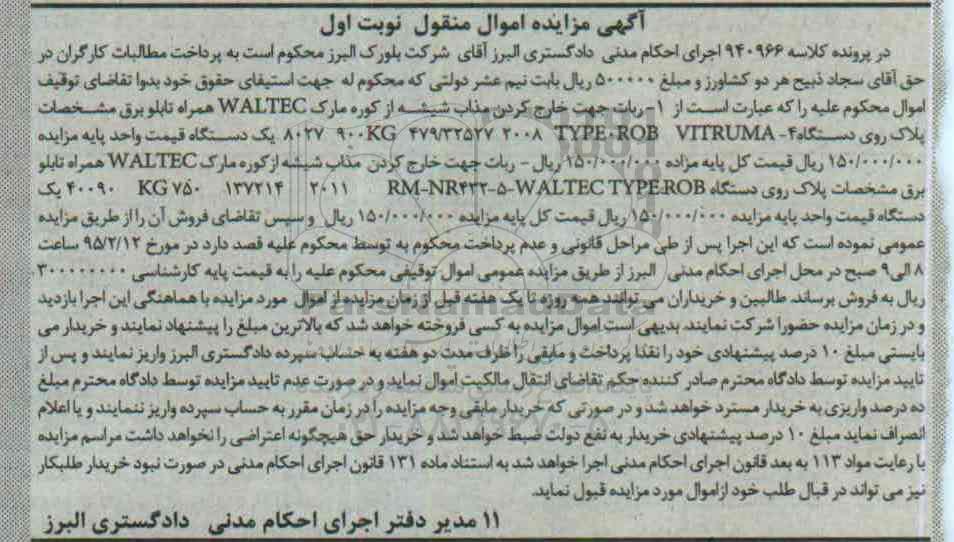 آگهی مزایده اموال منقول نوبت اول
در پرونده کلاسه ۹۴۰۹۶۶ اجرای احکام مدنی دادگستری البرز آقای شرکت بلورک البرز محکوم است به پرداخت مطالبات کارگران در
حق آقای سجاد ذبیح هر دو کشاورز و مبلغ ۵۰۰۰۰۰ ریال بابت نیم عشر دولتی که محکوم له جهت استیفای حقوق خود بدوا تقاضای توقیف
اموال محکوم علیه را که عبارت است از ۱- ربات جهت خارج کردن مذاب شیشه از کوره مارک WALTEC همراه تابلو برق مشخصات
پلاک روی دستگاه ۴- VITRUMA TYPE:ROB ۲۰۰۸ ۴۷۹/۳۲۵۲۷ ۹۰۰KG ۸۰۲۷ یک دستگاه قیمت واحد پایه مزایده
۱۵۰/۰۰۰/۰۰۰ ریال قیمت کل پایه مزاده ۱۵۰/۰۰۰/۰۰۰ ریال - ربات جهت خارج کردن مذاب شیشه از کوره مارک WALTEC همراه تابلو
برق مشخصات پلاک روی دستگاه RM-NR۴۳۲-۵-WALTEC TYPE:ROB ۲۰۱۱ ۱۳۷۲۱۴ KG ۷۵۰ ۴۰۰۹۰ یک
دستگاه قیمت واحد پایه مزایده ۱۵۰/۰۰۰/۰۰۰ ریال قیمت کل پایه مزایده ۱۵۰/۰۰۰/۰۰۰ ریال و سپس تقاضای فروش آن را از طریق مزایده
عمومی نموده است که این اجرا پس از طی مراحل قانونی و عدم پرداخت محکوم به توسط محکوم علیه قصد دارد در مورخ ۹۵/۲/۱۲ ساعت
۸ الی ۹ صبح در محل اجرای احکام مدنی البرز از طریق مزایده عمومی اموال توقیفی محکوم علیه را به قیمت پایه کارشناسی ۳۰۰۰۰۰۰۰۰
ریال به فروش برساند. طالبین و خریداران می توانند همه روزه تا یک هفته قبل از زمان مزایده از اموال مورد مزایده با هماهنگی این اجرا بازدید
و در زمان مزایده حضورا شرکت نمایند. بدیهی است اموال مزایده به کسی فروخته خواهد شد که بالاترین مبلغ را پیشنهاد نمایند و خریدار می
بایستی مبلغ ۱۰ درصد پیشنهادی خود را نقدا پرداخت و مابقی را ظرف مدت دو هفته به حساب سپرده دادگستری البرز واریز نمایند و پس از
تایید مزایده توسط دادگاه محترم صادر کننده حکم تقاضای انتقال مالکیت اموال نماید و در صورت عدم تایید مزایده توسط دادگاه محترم مبلغ
ده درصد واریزی به خریدار مسترد خواهد شد و در صورتی که خریدار مابقی وجه مزایده را در زمان مقرر به حساب سپرده واریز ننمایند و یا اعلام
انصراف نماید مبلغ ۱۰ درصد پیشنهادی خریدار به نفع دولت ضبط خواهد شد و خریدار حق هیچگونه اعتراضی را نخواهد داشت مراسم مزایده
با رعایت مواد ۱۱۳ به بعد قانون اجرای احکام مدنی اجرا خواهد شد به استناد ماده ۱۳۱ قانون اجرای احکام مدنی در صورت نبود خریدار طلبکار
نیز می تواند در قبال طلب خود از اموال مورد مزایده قبول نماید.
۱۱ مدیر دفتر اجرای احکام مدنی دادگستری البرز